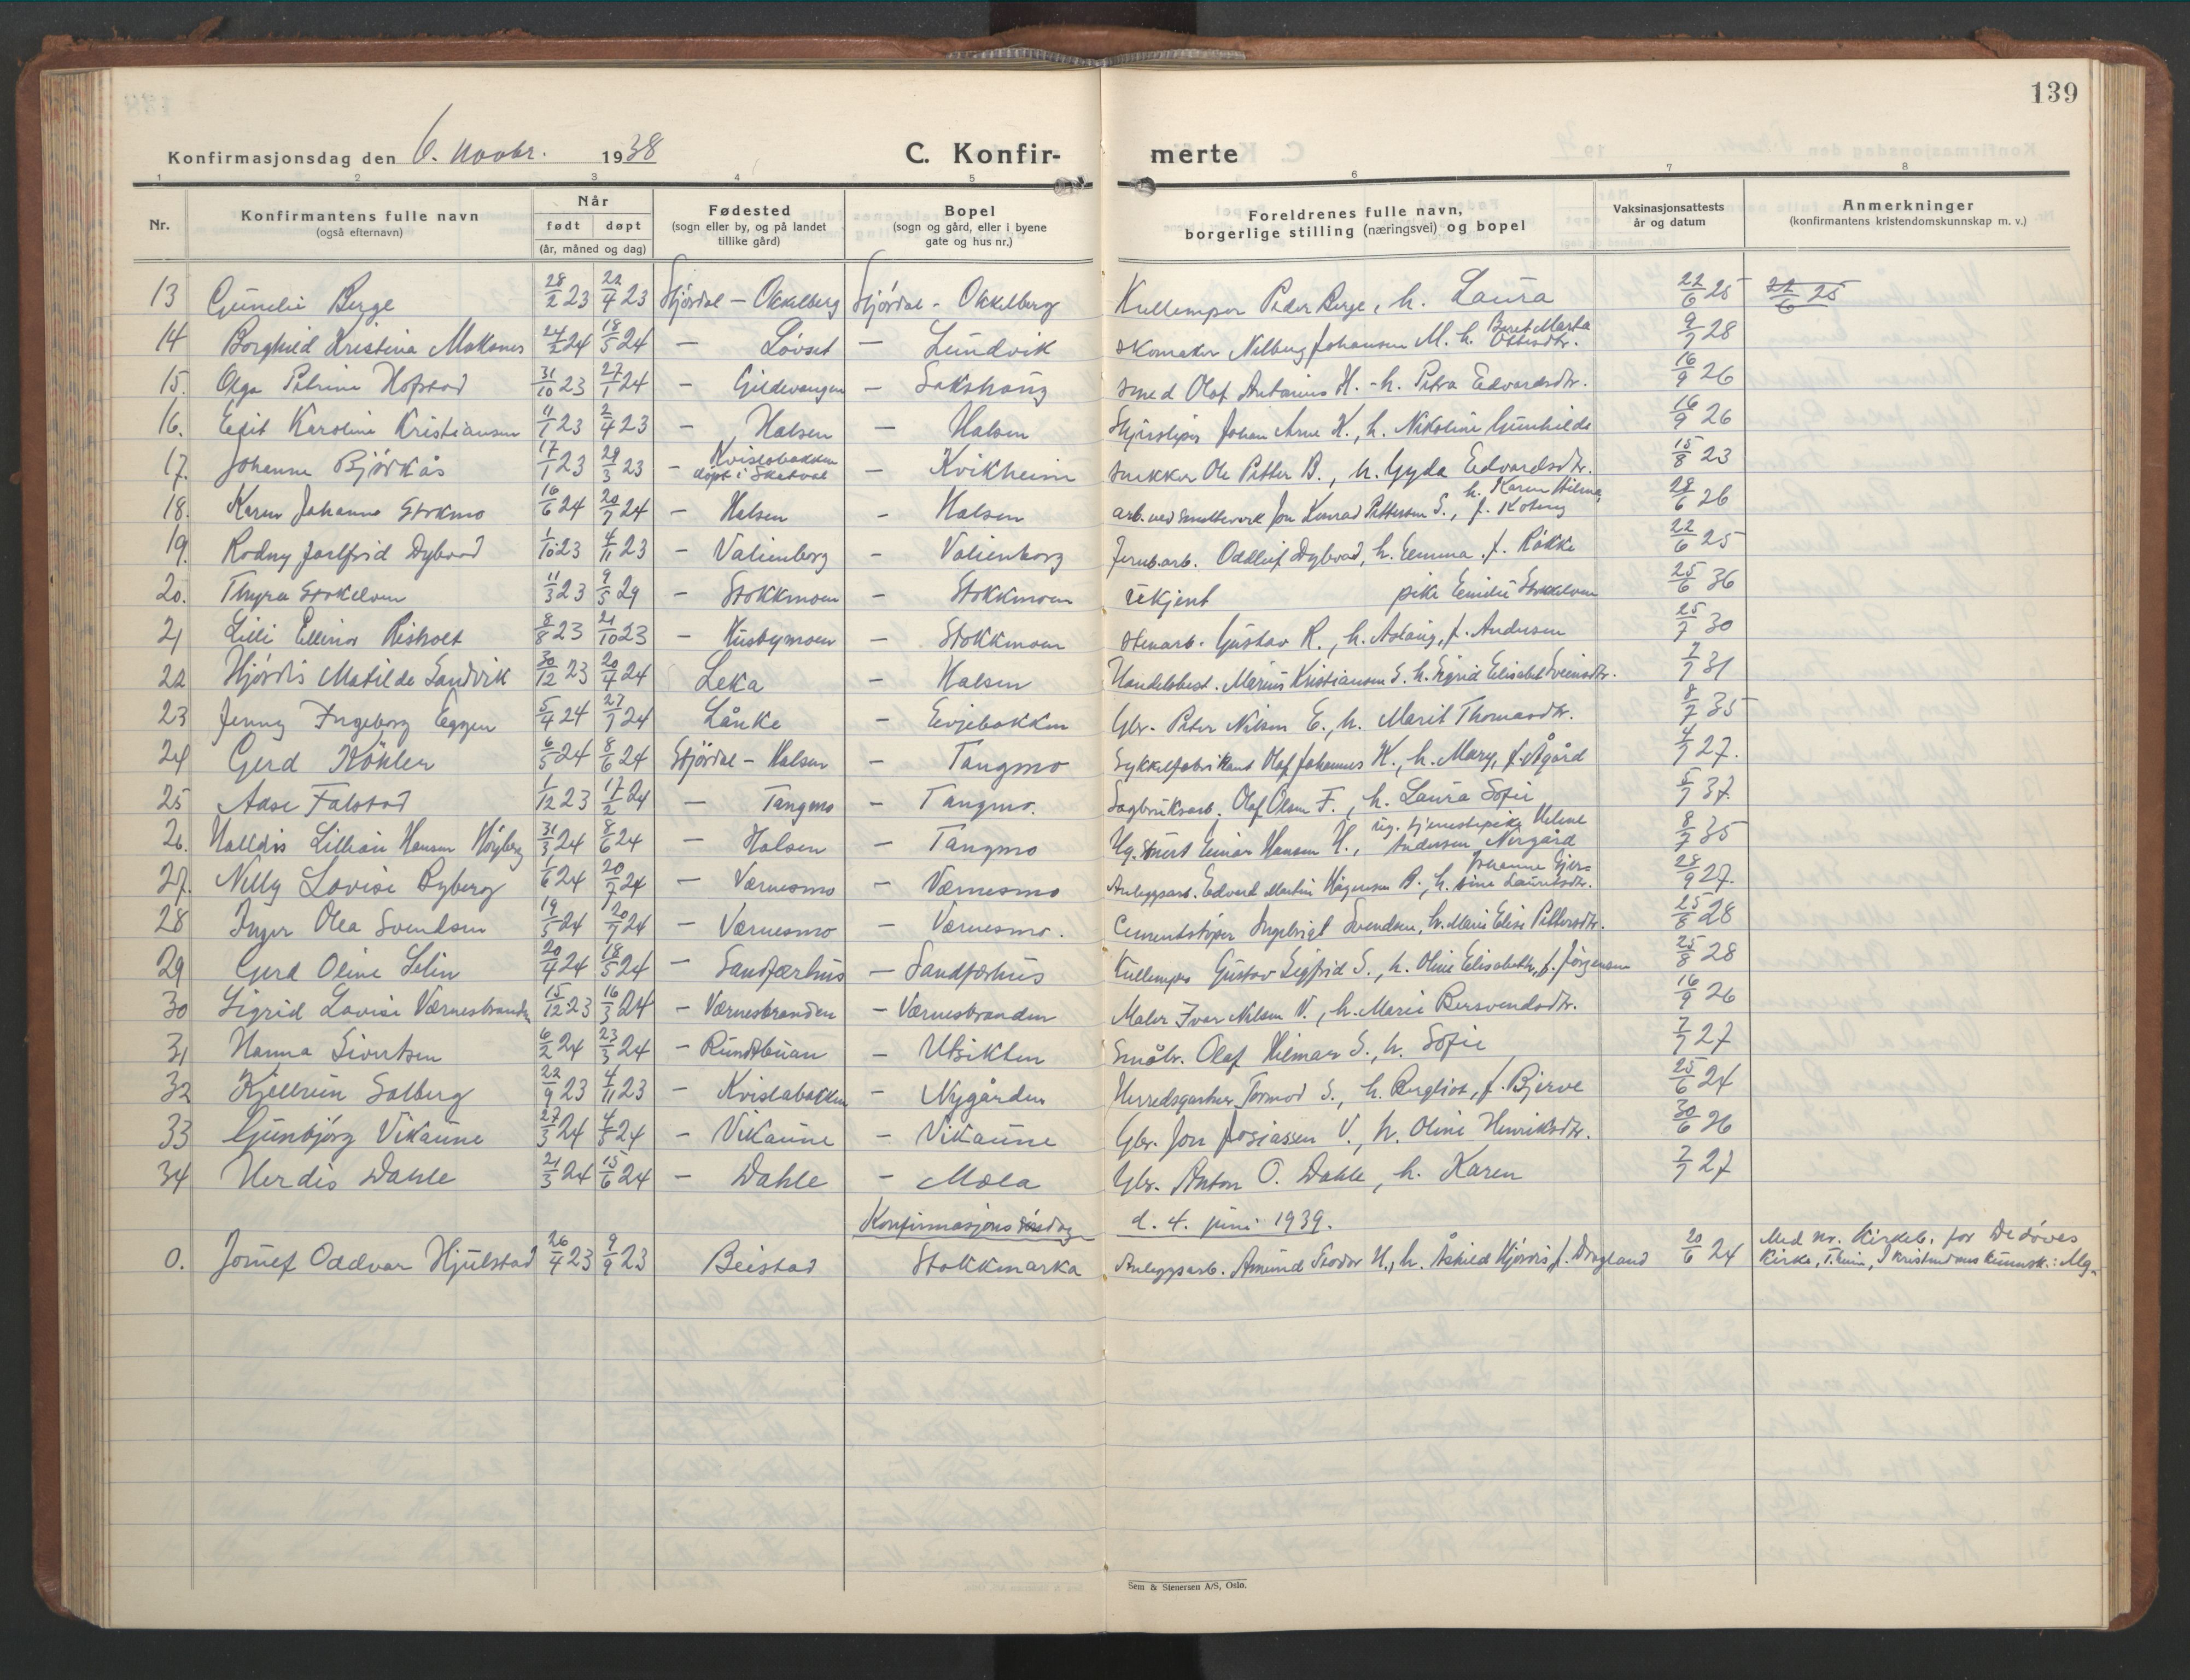 139
Konfirmasjonsdag den 6. novbr. 1938 C. Konfir- merte
1 2 3 4 5 6 7 8
Nr. Konfirmantens fulle navn (også efternavn) Når født døpt (år, måned og dag) Fødested (sogn eller by, og på landet tillike gård) Bopel (sogn og gård, eller i byene gate og hus nr.) Foreldrenes fulle navn, borgerlige stilling (næringsvei) og bopel Vaksinasjonsattests år og datum Anmerkninger (konfirmantens kristendomskunnskap m. v.)
13 Berge 28/2 23 22/4 23 Stjørdal - Okkelberg Stjørdal - Okkelberg Peder Berge, h. Laura 22/6 25 22/6 25
14 Borghild Kristina Moksnes 24/2 24 18/5 24 - Løvset - Lundvik Skomaker Johansen M. h. Beret Marta Ottesdtr. 9/7 28
15. Olga Petrine Hofstad 31/10 23 27/1 24 - Gildevangen - Sakshaug smed Olaf Antonius H. - h. Petra Edvardsdtr. 16/9 26
16. Edit Karoline Kristiansen 11/1 23 2/4 23 - Halsen - Halsen Johan Arne K., h. Nikoline Gunhilde 16/9 26
17. Johanne Bjørkås 17/1 23 29/3 23 - Kvislabakken døpt i Skatval - Kvikheim snekker Ole Petter B., h. Gyda Edvardsdtr. 15/8 23
18. Karen Johanne Stokmo 16/6 24 20/7 24 - Halsen - Halsen arb. ved smelteverk Jon Konrad Pettersen S., h. Karen Hilma, f. Koteng 28/6 26
19. Rodny Jarlfrid Dybvad 1/10 23 4/11 23 - Valienborg - Valienborg Jernb.arb. Oddleif Dybvad, h. Emma f. Røkke 22/6 25
20. Thyra Stokkelven 11/3 23 9/5 29 - Stokkmoen - Stokkmoen Ukjent pike Emilie Stokkelven 25/6 36
21 Lilli Ellinor Risholt 8/8 23 21/10 23 - Husbymoen - Stokkmoen Stenarb. Gustav R., h. Aslaug, f. Andersen 25/7 30
22 Hjørdis Matilde Sandvik 30/12 23 20/4 24 Leka - Halsen Handelsbest. Marius Kristiansen S. h. Sigrid Elisabet Sveinsdtr. 7/7 31
23 Jenny Ingeborg Eggen 5/4 24 27/7 24 Lånke - Evjebakken Gbr. Peter Nilsen E., h. Marit Thomasdtr. 8/7 35
24 Gerd Köhler 6/5 24 8/6 24 Stjørdal - Halsen - Tangmo Sykkelfabrikant Olaf Johannes K., h. Mary, f. Ågård 4/7 27.
25 Aase Falstad 1/12 23 17/2 24 - Tangmo - Tangmo. Sagbruksarb. Olaf Olsen F., h. Laura Sofie 5/7 37.
26. Halldis Lillian Hansen Høyberg 31/3 24 8/6 24 - Halsen - Tangmo Ug. Einar Hansen H., ug. tjenestepike Helene Andersen Nergård 8/7 35
27. Nelly Lovise Byberg 1/6 24 20/7 24 - Værnesmo - Værnesmo Anleggsarb. Edvard Martin Hågensen B., h. Johanne Gjer- sine Lauritsdtr. 28/9 27.
28 Inger Olea Svendsen 19/5 24 20/7 24 - Værnesmo - Værnesmo. Cementstøper Ingebrigt Svendsen, h. Marie Elise Pettersdtr. 25/8 28
29 Gerd Oline Selin 20/4 24 18/5 24 - Sandfærhus - Sandfærhus Gustav Sigfrid S., h. Oline Elisabeth, f. Jörgensen 25/8 28
30 Sigrid Lovise Værnesbranden 15/12 23 16/3 24 - Værnesbranden - Værnesbranden Maler Ivar Nilsen V., h. Marie Bersvendsdtr. 16/9 26
31 Hanna Sivertsen 6/2 24 23/3 24 - - Utsikten Småbr. Olaf Hilmar S., h. Sofie 7/7 27
32 Kjellrun Solberg 22/9 23 4/11 23 - Kvislabakken - Nygården Herredsgartner Tormod S., h. Bergliot, f. Bjerve 25/6 24
33 Gunbjørg Vikaune 27/3 24 4/5 24 - Vikaune - Vikaune Gbr. Jon Josiassen V., h. Oline Henriksdtr. 30/6 26
34 Herdis Dahle 21/3 24 15/6 24 - Dahle - Mæla Gbr. Anton O. Dahle, h. Karen 7/7 27
Konfirmasjons d. 4. juni 1939.
0. Oddvar Hjulstad 26/4 23 9/9 23 Beistad Stokkmarka Anleggsarb. Amund Teodor H., h. Åshild Hjørdis f. Dragland 20/6 24 Med nr. Kirkeb. for De døves
Kirke, T.heim, I Kristendomskunnsk.: Mg.
Sem & Stenersen A/S, Oslo.